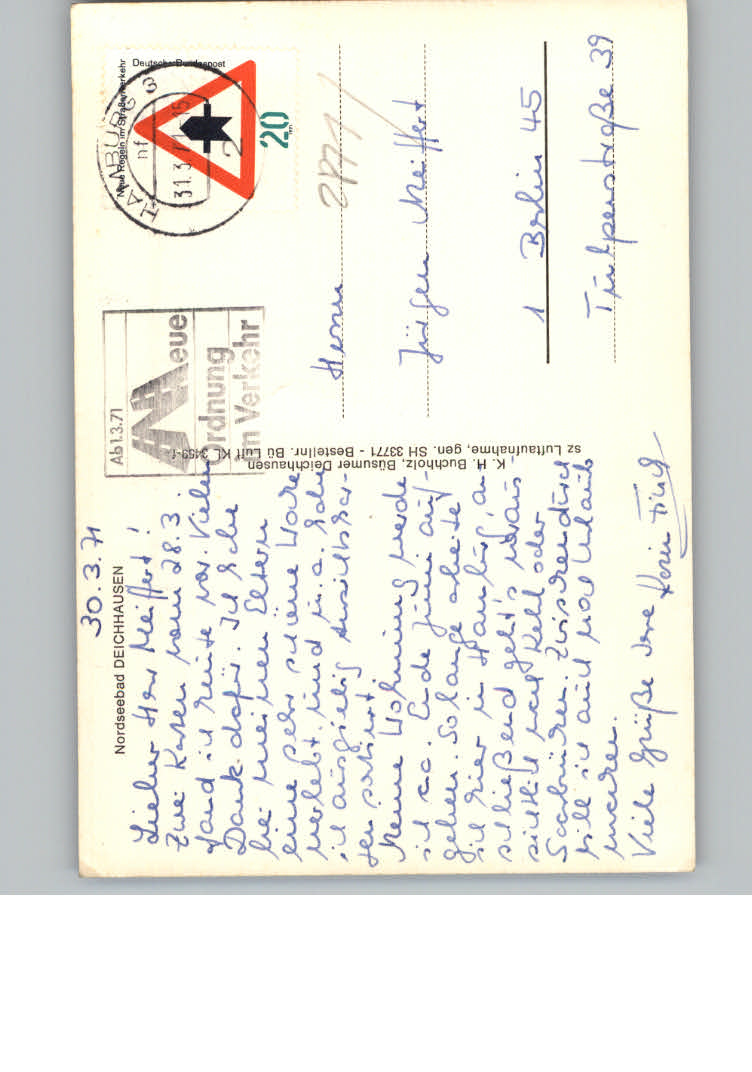 Nordseebad DEICHHAUSEN
30.3.71
Lieber Herr Meiffert!
Zwei Karten vom 28.3.
fand ich heute vor. Vielen
Dank dafür. Ich habe
bei meinen Eltern
eine sehr schöne Woche
verlebt und u.a. habe
ich ausgiebig Ansichtskar-
ten sortiert.
Meine Wohnung werde
ich ca. Ende Juni auf-
geben. Solange arbeite
ich hier in Hamburg, an-
schließend geht's voraus-
sichtlich nach Kehl oder
Saarbrücken. Zwischendurch
will ich auch noch Urlaub
machen.
Viele Grüße Ihre Karin
K. H. Buchholz, Büsumer Deichhausen
sz Luftaufnahme, gen. SH 33771 - Bestellnr. Bü Luft KL
Ab 1.3.71
Neue
Ordnung
im Verkehr
Neue Regeln im Straßenverkehr
Deutsche Bundespost
20
HAMBURG 3
nf
31.3.71-15
2
Herrn
Jürgen Meiffert
1 Berlin 45
Tulpenstraße 39